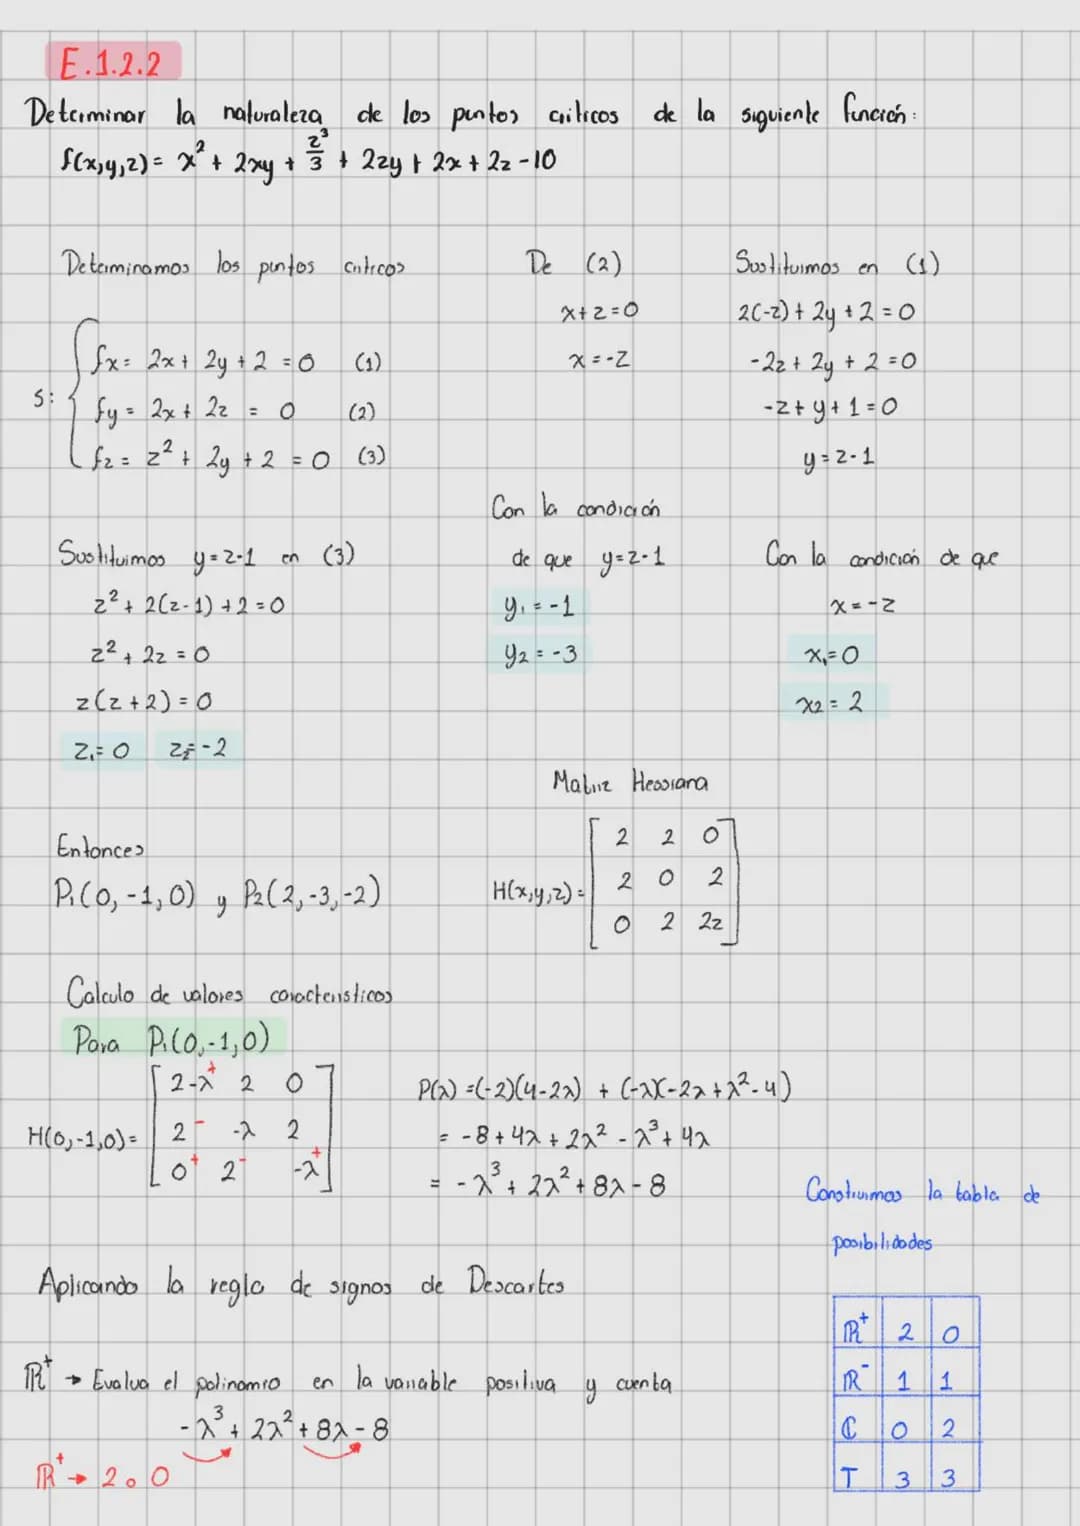 E.1.2.2
Determinar la naturaleza de los puntos críticos de la siguiente función:
f(x,y,z) = x² + 2xy + z³/3 + 2zy + 2x + 2z - 10
Determinamos los puntos críticos
S: { fx = 2x + 2y + 2 = 0 (1)
fy = 2x + 2z = 0 (2)
fz = z² + 2y + 2 = 0 (3)
De (2)
x + z = 0
x = -z
Sustituimos en (1)
2(-z) + 2y + 2 = 0
-2z + 2y + 2 = 0
-z + y + 1 = 0
y = z - 1
Sustituimos y = z-1 en (3)
z² + 2(z-1) + 2 = 0
z² + 2z = 0
z(z + 2) = 0
z₁ = 0 z₂ = -2
Con la condición
de que y = z-1
y₁ = -1
y₂ = -3
Con la condición de que
x = -z
x₁ = 0
x₂ = 2
Entonces
P₁(0, -1, 0) y P₂(2, -3, -2)
Matriz Hessiana
H(x,y,z) = [ 2 2 0
2 0 2
0 2 2z ]
Calculo de valores caracteristicos
Para P₁(0,-1,0)
H(0,-1,0) = [ 2-λ⁺ 2 0
2⁻ -λ 2
0⁺ 2⁻ -λ⁺ ]
P(λ) = (-2)(4-2λ) + (-λ)(-2λ + λ² - 4)
= -8 + 4λ + 2λ² - λ³ + 4λ
= -λ³ + 2λ² + 8λ - 8
Aplicando la regla de signos de Descartes
ℝ⁺ → Evalua el polinomio en la variable positiva y cuenta
-λ³ + 2λ² + 8λ - 8
ℝ⁺ → 2 o 0
Construimos la tabla de
posibilidades
ℝ⁺ 2 0
ℝ⁻ 1 1
ℂ 0 2
T 3 3